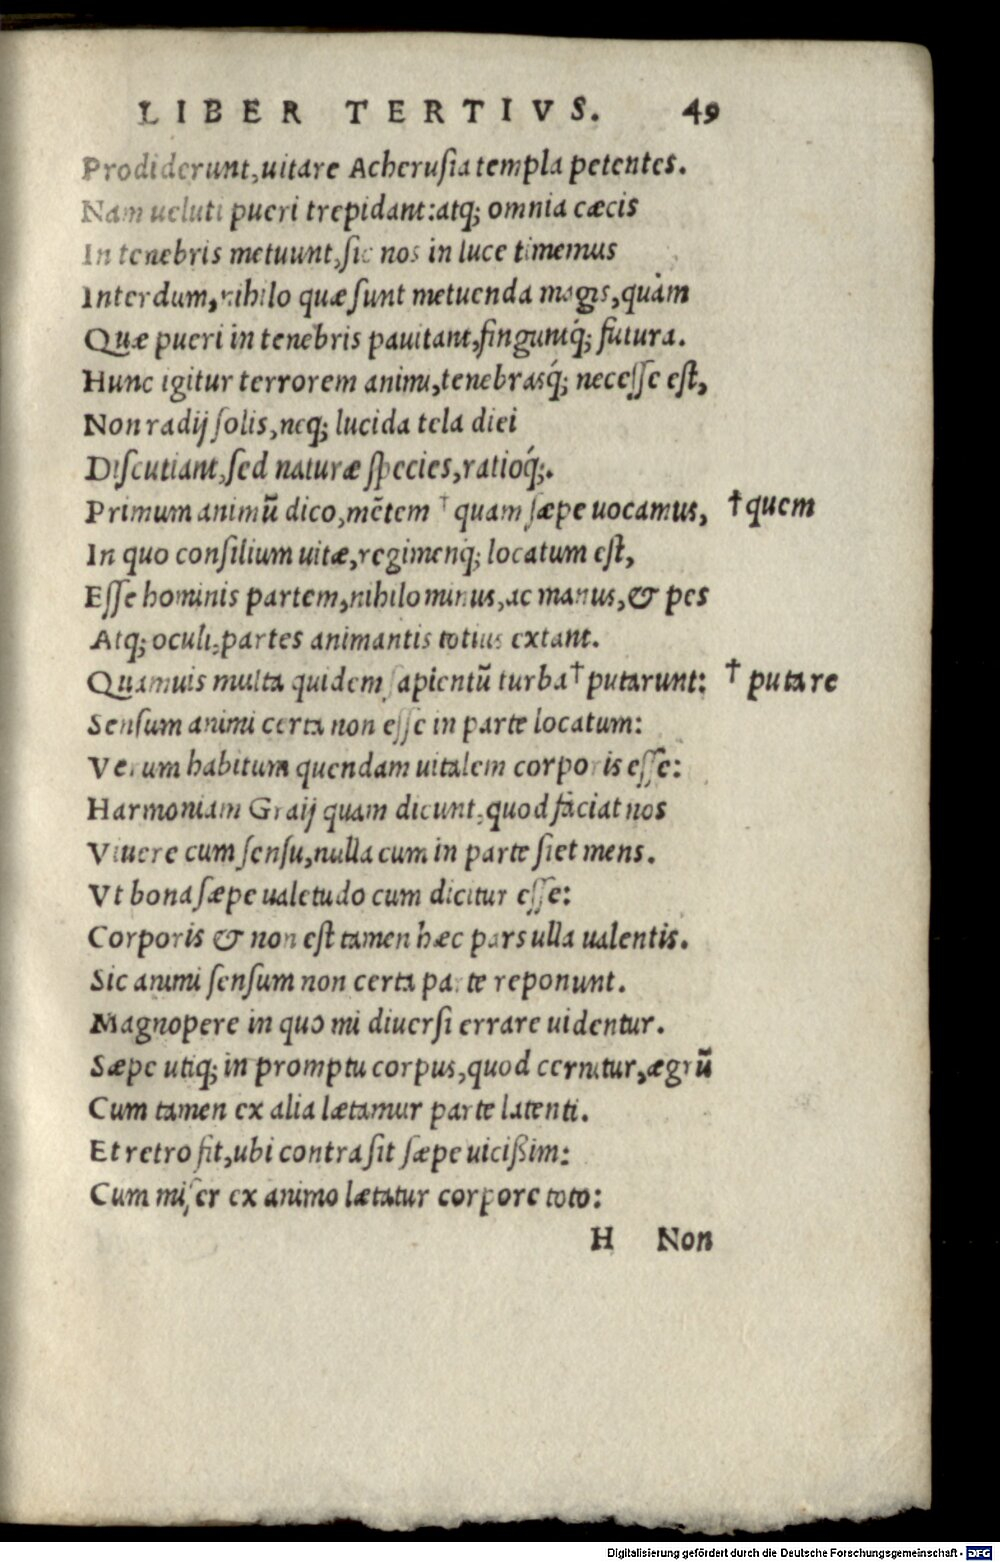 LIBER TERTIVS. 49
Prodiderunt, uitare Acherusia templa petentes.
Nam ueluti pueri trepidant: atq; omnia cæcis
In tenebris metuunt, sic nos in luce timemus
Interdum, nihilo quæ sunt metuenda magis, quàm
Quæ pueri in tenebris pauitant, finguntq́; futura.
Hunc igitur terrorem animi, tenebrasq́; necesse est,
Non radij solis, neq; lucida tela diei
Discutiant, sed naturæ species, ratioq́;.
Primum animū dico, mẽtem † quam sæpe uocamus, † quem
In quo consilium uitæ, regimenq́; locatum est,
Esse hominis partem, nihilo minus, ac manus, & pes
Atq; oculi, partes animantis totius extant.
Quamuis multa quidem sapientũ turba † putarunt: † putare
Sensum animi certa non esse in parte locatum:
Verum habitum quendam uitalem corporis esse:
Harmoniam Graij quam dicunt, quod faciat nos
Viuere cum sensu, nulla cum in parte siet mens.
Vt bona sæpe ualetudo cum dicitur esse:
Corporis & non est tamen hæc pars ulla ualentis.
Sic animi sensum non certa parte reponunt.
Magnopere in quo mi diuersi errare uidentur.
Sæpe utiq; in promptu corpus, quod cernitur, ægrũ
Cum tamen ex alia lætamur parte latenti.
Et retro fit, ubi contra sit sæpe uicißim:
Cum miser ex animo lætatur corpore toto:
H Non
Digitalisierung gefördert durch die Deutsche Forschungsgemeinschaft - DFG